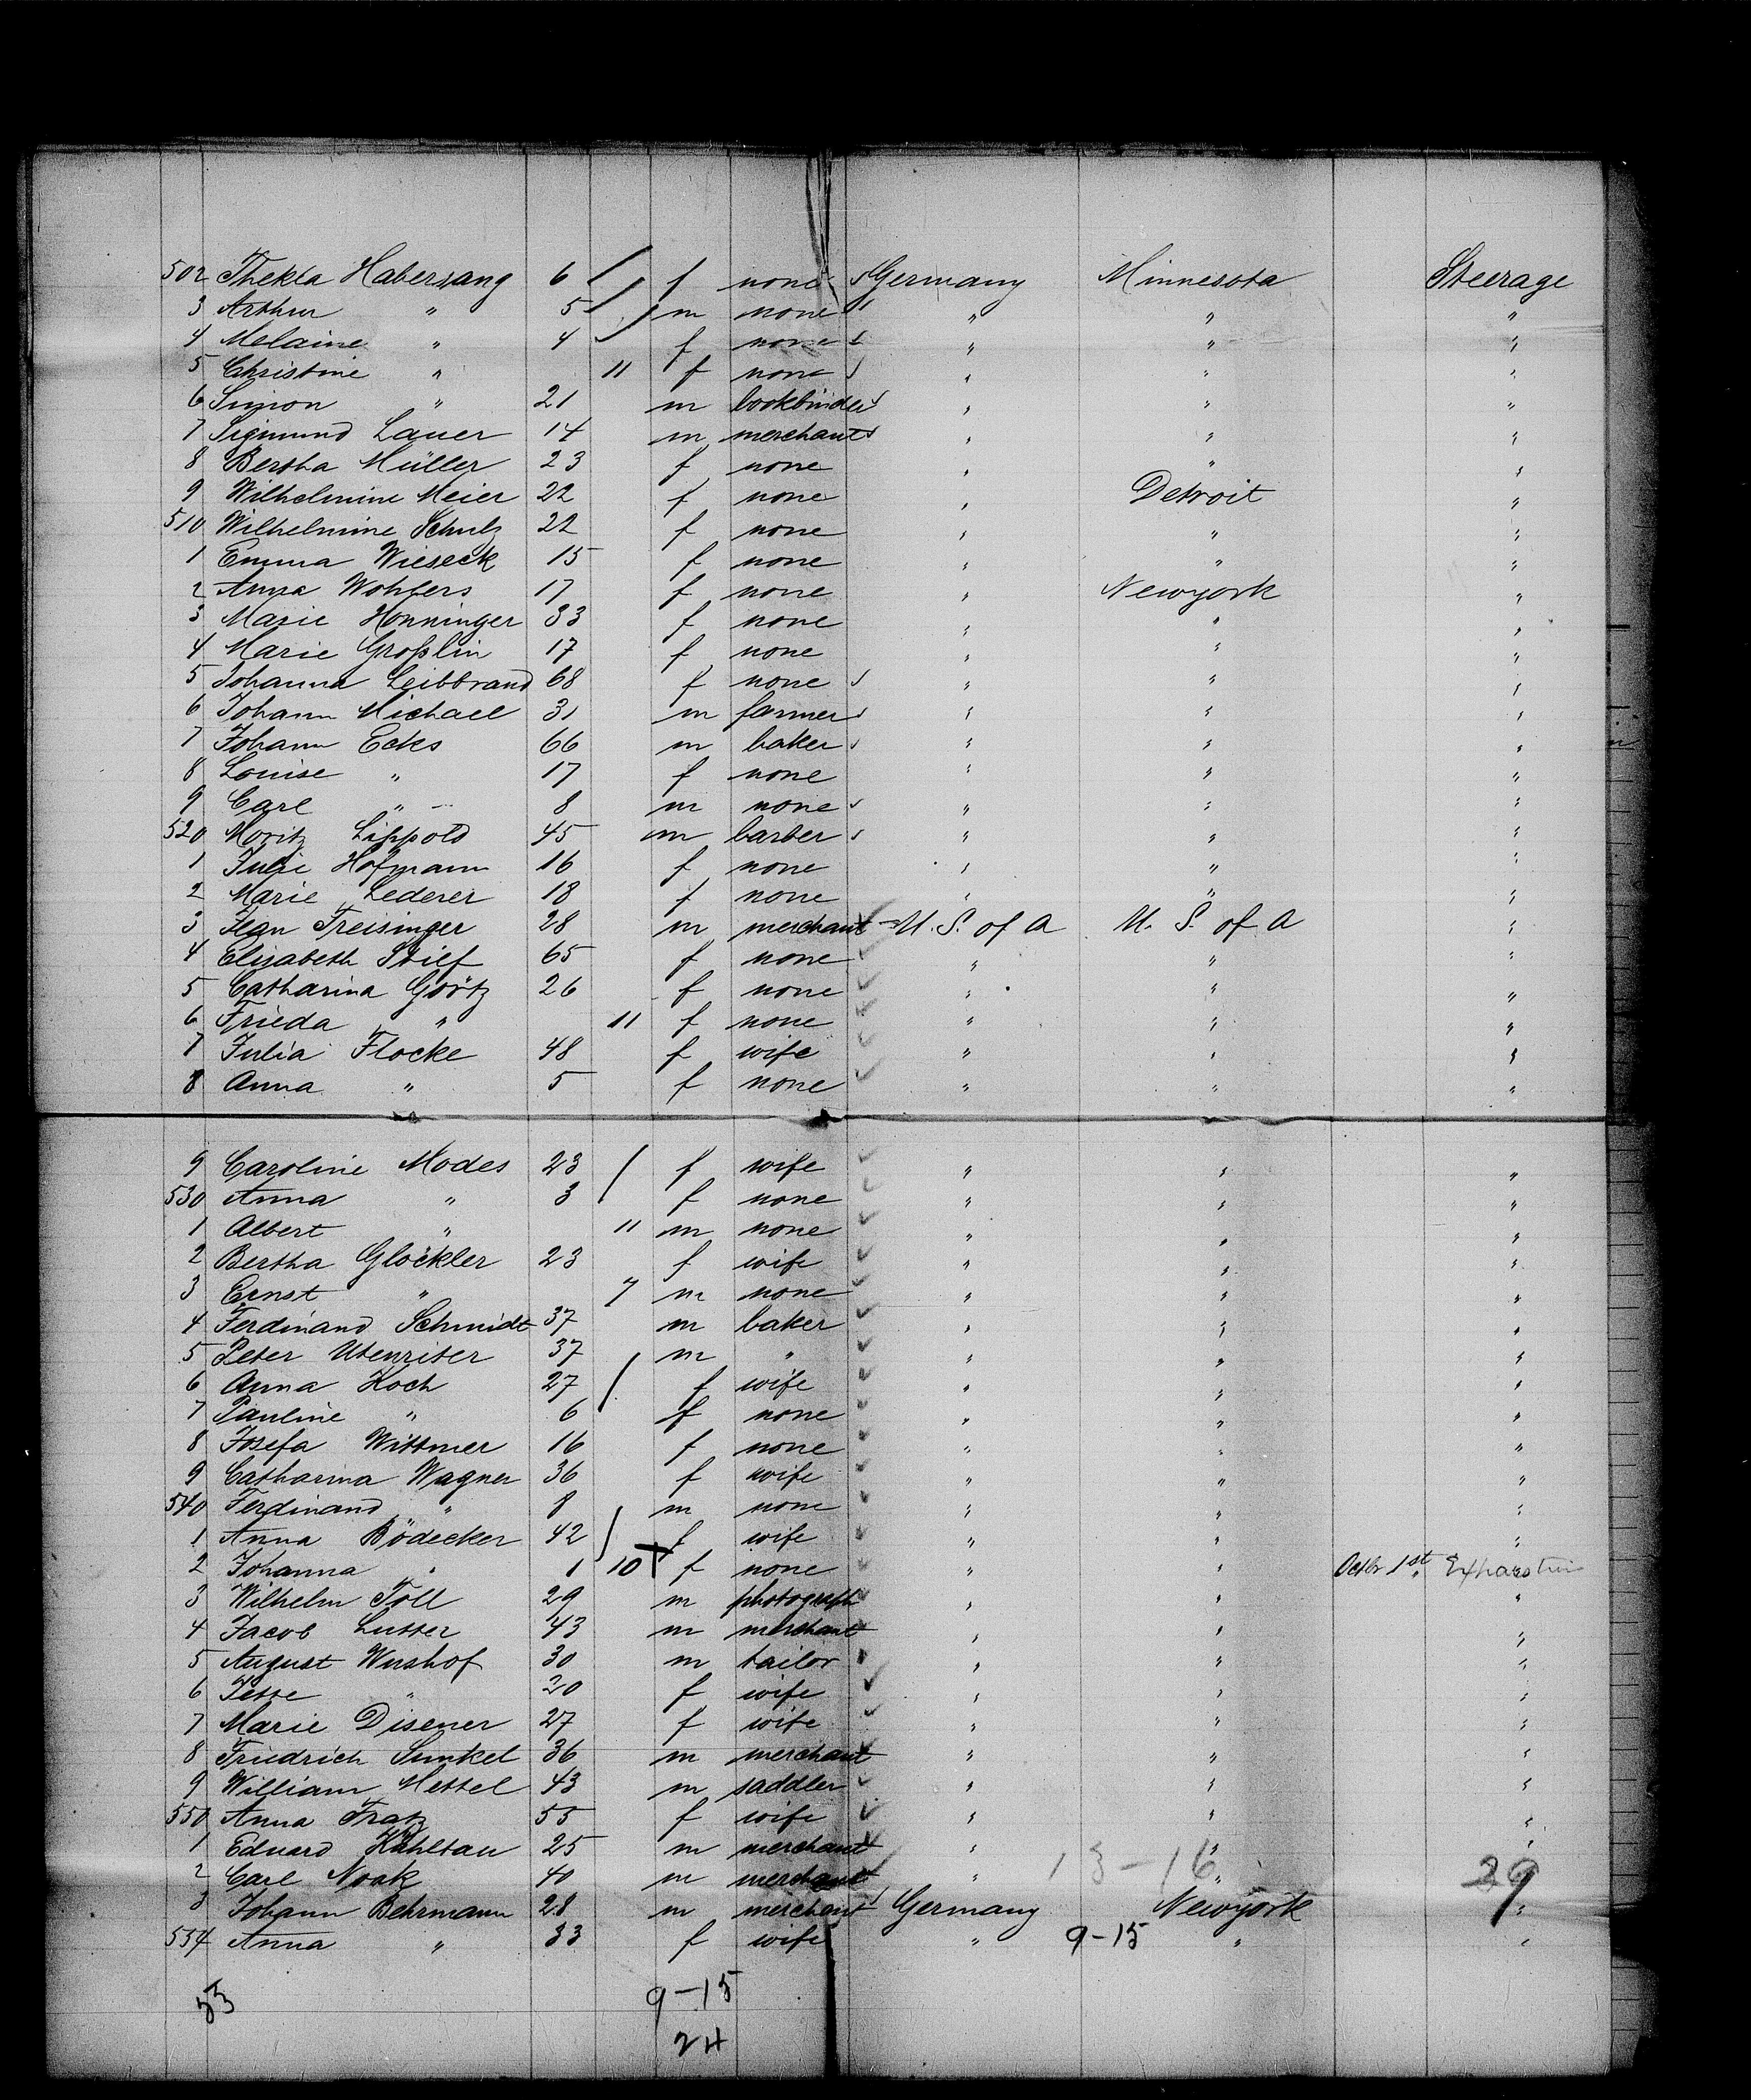 502 Thekla Habersang 6 f none Germany Minnesota Steerage
3 Arthur " 5 m none " " "
4 Melaine " 4 f none " " "
5 Christine " 11 f none " " "
6 Simon " 21 m bookbinder " " "
7 Sigmund Lauer 14 m merchant " " "
8 Bertha Müller 23 f none " " "
9 Wilhelmine Meier 22 f none " Detroit "
510 Wilhelmine Schulz 22 f none " " "
1 Emma Wieseck 15 f none " " "
2 Anna Wohlers 17 f none " Newyork "
3 Marie Honninger 33 f none " " "
4 Marie Großlin 17 f none " " "
5 Johanna Leibbrand 68 f none " " "
6 Johann Michael 31 m farmer " " "
7 Johann Ecks 66 m baker " " "
8 Louise " 17 f none " " "
9 Carl " 8 m none " " "
520 Moritz Lippold 45 m barber " " "
1 Julie Hofmann 16 f none " " "
2 Marie Lederer 18 f none " " "
3 Jean Treisinger 28 m merchant U. S. of A U. S. of A "
4 Elisabeth Stief 65 f none " " "
5 Catharina Görtz 26 f none " " "
6 Frieda " 11 f none " " "
7 Julia Flocke 48 f wife " " "
8 Anna " 5 f none " " "
9 Caroline Modes 23 f wife " " "
530 Anna " 3 f none " " "
1 Albert " 11 m none " " "
2 Bertha Glöckler 23 f wife " " "
3 Ernst " 7 m none " " "
4 Ferdinand Schmidt 37 m baker " " "
5 Peter Utenriter 37 m " " " "
6 Anna Koch 27 f wife " " "
7 Pauline " 6 f none " " "
8 Josefa Wittmer 16 f none " " "
9 Catharina Wagner 36 f wife " " "
540 Ferdinand " 8 m none " " "
1 Anna Bödecker 42 f wife " " "
2 Johanna " 1 10 f none " " Octbr 1st
3 Wilhelm Toll 29 m photograph " " "
4 Jacob Lutter 43 m merchant " " "
5 August Wushof 30 m tailor " " "
6 Jette " 20 f wife " " "
7 Marie Disener 27 f wife " " "
8 Friedrich Sunkel 36 m merchant " " "
9 William Mettel 43 m saddler " " "
550 Anna Fratz 55 f wife " " "
1 Eduard Kühltau 25 m merchant " " "
2 Carl Noak 40 m merchant " 13-16 " 29
3 Johann Behrmann 28 m merchant Germany Newyork "
554 Anna " 33 f wife " 9-15 " "
53 9-15
24